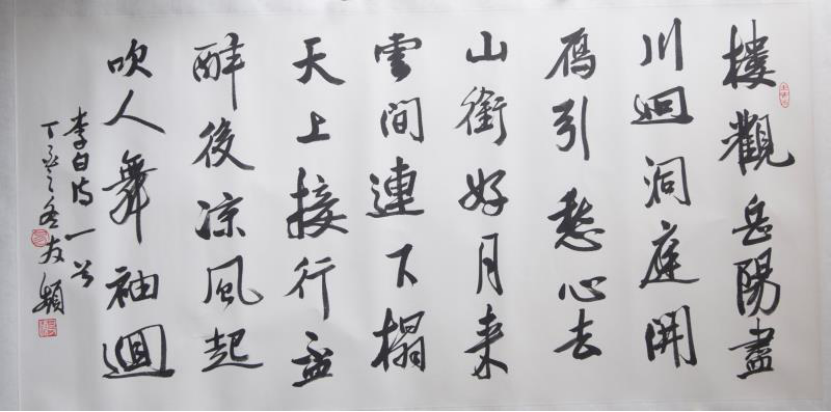 樓觀岳陽盡
川迥洞庭開
鴈引愁心去
山銜好月来
雲間連下榻
天上接行盃
醉後凉風起
吹人舞袖迴
李白诗一首
丁亥之冬友頻